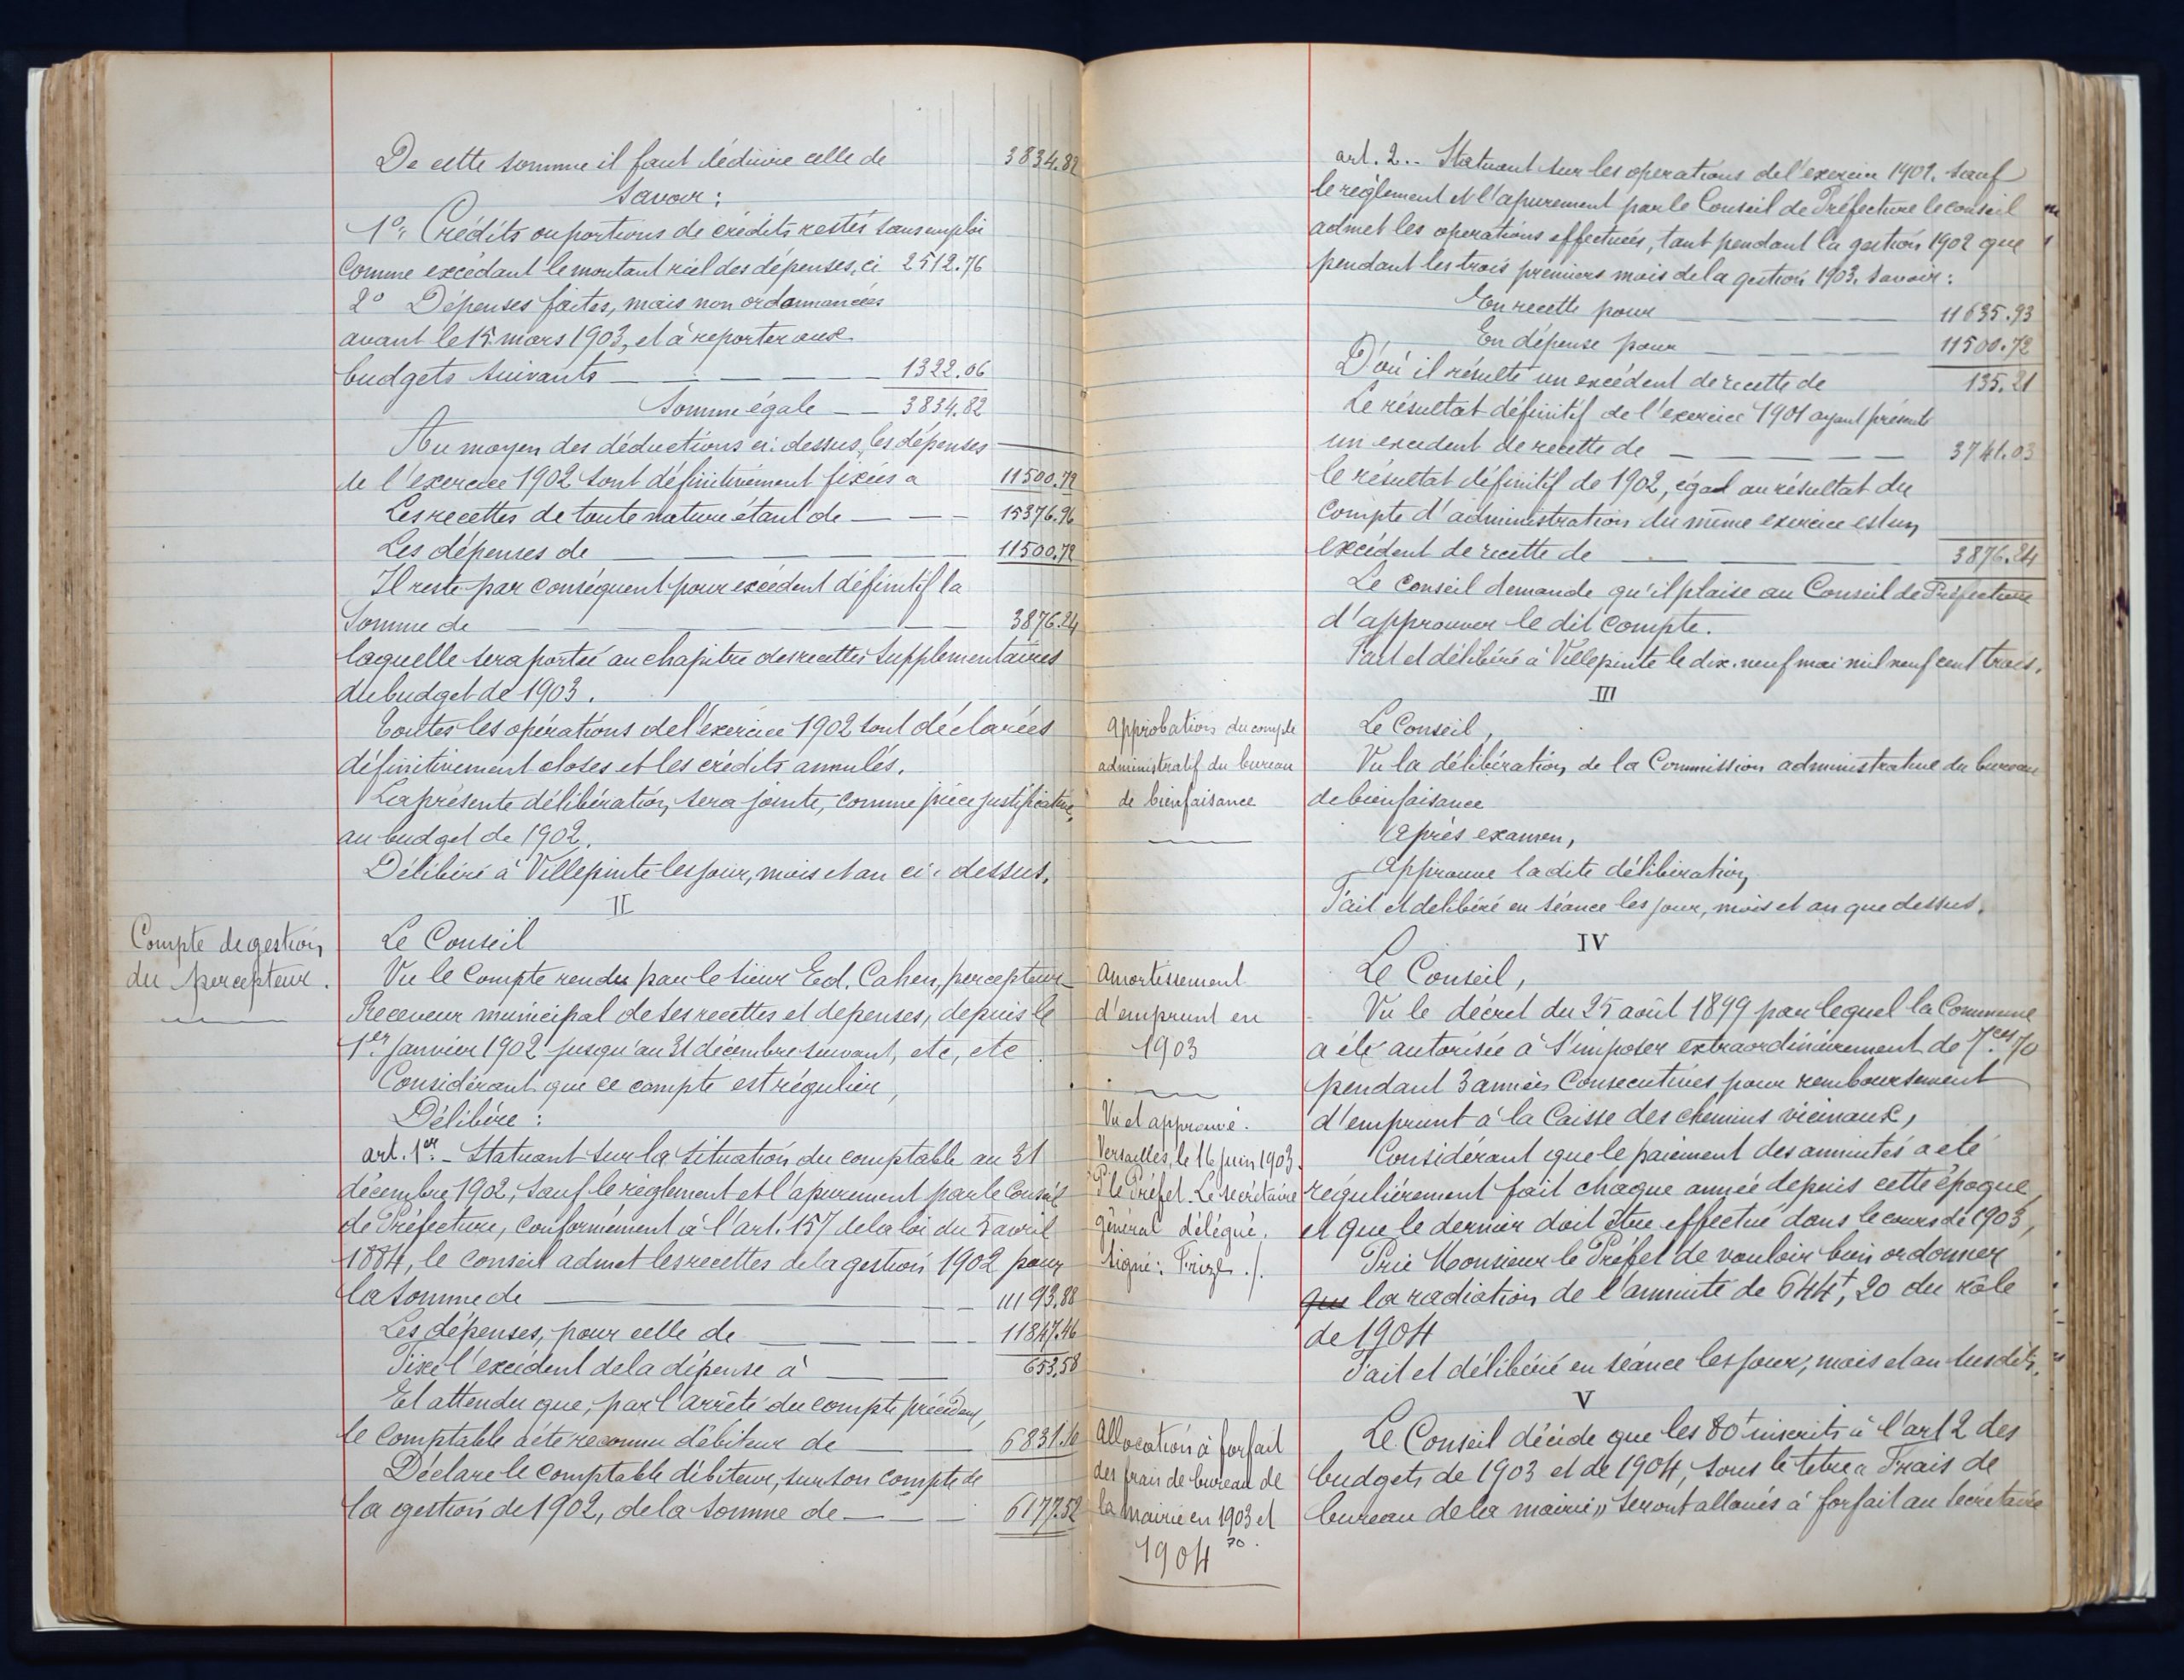 De cette somme il faut déduire celle de 3834.82
Savoir:
1°. Crédits ou portions de crédits restés sans emploi
Comme excédant le montant réel des dépenses, ci 2512.76
2° Dépenses faites, mais non ordonnancées
avant le 15 mars 1903, et à reporter aux
budgets suivants 1322.06
Somme égale 3834.82
Au moyen des déductions ci-dessus, les dépenses
de l'exercice 1902 sont définitivement fixées a 11500.72
Les recettes de toute nature étant de 15376.96
Les dépenses de 11500.72
Il reste par conséquent pour excédent définitif la
Somme de 3876.24
laquelle sera portée au chapitre des recettes Supplémentaires
du budget de 1903.
Toutes les opérations de l'exercice 1902 sont déclarées
définitivement closes et les crédits annulés.
La présente délibération sera jointe, comme pièce justificative,
au budget de 1902.
Délibéré à Villepinte les jour, mois et an ci-dessus.
II
Compte de gestion
du percepteur.
Le Conseil
Vu le Compte rendu par le sieur Ed. Cahen, percepteur
Receveur municipal de ses recettes et dépenses, depuis le
1er Janvier 1902 jusqu'au 31 décembre suivant, etc, etc.
Considérant que ce compte est régulier,
Délibère:
art. 1er. - Statuant sur la situation du comptable au 31
décembre 1902, sauf le règlement et l'apurement par le Conseil
de Préfecture, conformément à l'art. 157 de la loi du 5 avril
1884, le conseil admet les recettes de la gestion 1902 pour
la somme de 11193.88
Les dépenses, pour celle de 11847.46
Fixe l'excédent de la dépense à 653.58
Et attendu que, par l'arrêté du compte précédent,
le Comptable a été reconnu débiteur de 6831.10
Déclare le comptable débiteur, sur son compte de
la gestion de 1902, de la somme de 6177.52
art. 2.. Statuant sur les opérations de l'exercice 1902. sauf
le règlement et l'apurement par le Conseil de Préfecture le conseil
admet les opérations effectuées, tant pendant la gestion 1902 que
pendant les trois premiers mois de la gestion 1903. Savoir:
En recette pour 11635.93
En dépense pour 11500.72
D'où il résulte un excédent de recette de 135.21
Le résultat définitif de l'exercice 1901 ayant présenté
un excédent de recette de 3741.03
le résultat définitif de 1902, égal au résultat du
Compte d'administration du même exercice est un
excédent de recette de 3876.24
Le Conseil demande qu'il plaise au Conseil de Préfecture
d'approuver le dit Compte.
Fait et délibéré à Villepinte le dix-neuf mai mil neuf cent trois.
III
Approbation du compte
administratif du bureau
de bienfaisance
Le Conseil,
Vu la délibération de la Commission administrative du bureau
de bienfaisance
Après examen,
Approuve la dite délibération
Fait et délibéré en séance les jour, mois et an que dessus.
IV
Amortissement
d'emprunt en
1903
Vu et approuvé.
Versailles, le 16 juin 1903.
P. le Préfet. Le secrétaire
général délégué.
signé: Frize ./.
Le Conseil,
Vu le décret du 25 août 1899 par lequel la Commune
a été autorisée à s'imposer extraordinairement de 7ces 70
pendant 3 années Consécutives pour remboursement
d'emprunt à la Caisse des chemins vicinaux,
Considérant que le paiement des annuités a été
régulièrement fait chaque année depuis cette époque,
et que le dernier doit être effectué dans le cours de 1903,
Prie Monsieur le Préfet de vouloir bien ordonner
que la radiation de l'annuité de 644f, 20 du rôle
de 1904
Fait et délibéré en séance les jour, mois et an susdits.
V
Allocation à forfait
des frais de bureau de
la mairie en 1903 et
1904
70.
Le Conseil décide que les 80f inscrits à l'art 2 des
budgets de 1903 et de 1904, sous le titre « Frais de
bureau de la mairie » seront alloués à forfait au Secrétaire